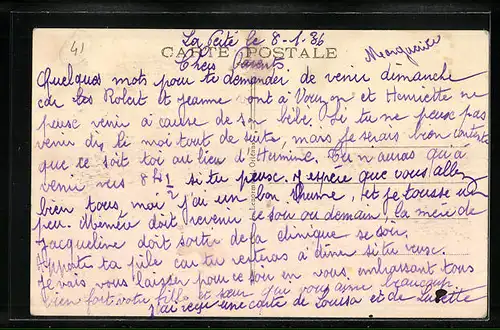 41
La Ferté le 8-1-36
CARTE POSTALE
Chers Parents
Quelques mots pour te demander de venir dimanche
car les Robert et Jeanne ont à et Henriette ne
puisc venir à cause de son bébé. Si tu ne peusc pas
venir dis le moi tout de suite, mais je serais bien contente
que ce soit toi au lieu d'Hermine. Tu n'auras qu'à
venir vers 8h1/2 si tu peusc. J'espère que vous allez
bien tous, moi j'ai un bon rhume, et je tousse un
peu. Mémère doit revenir ce soir ou demain, la mère de
Jacqueline doit sortir de la clinique ce soir.
Apporte ta pile car tu resteras à dîner si tu veusc.
Je vais vous laisser pour ce soir en vous embrassant tous
bien fort votre fille et sœur qui vous aime beaucoup.
J'ai reçu une carte de Louisa et de Lucette